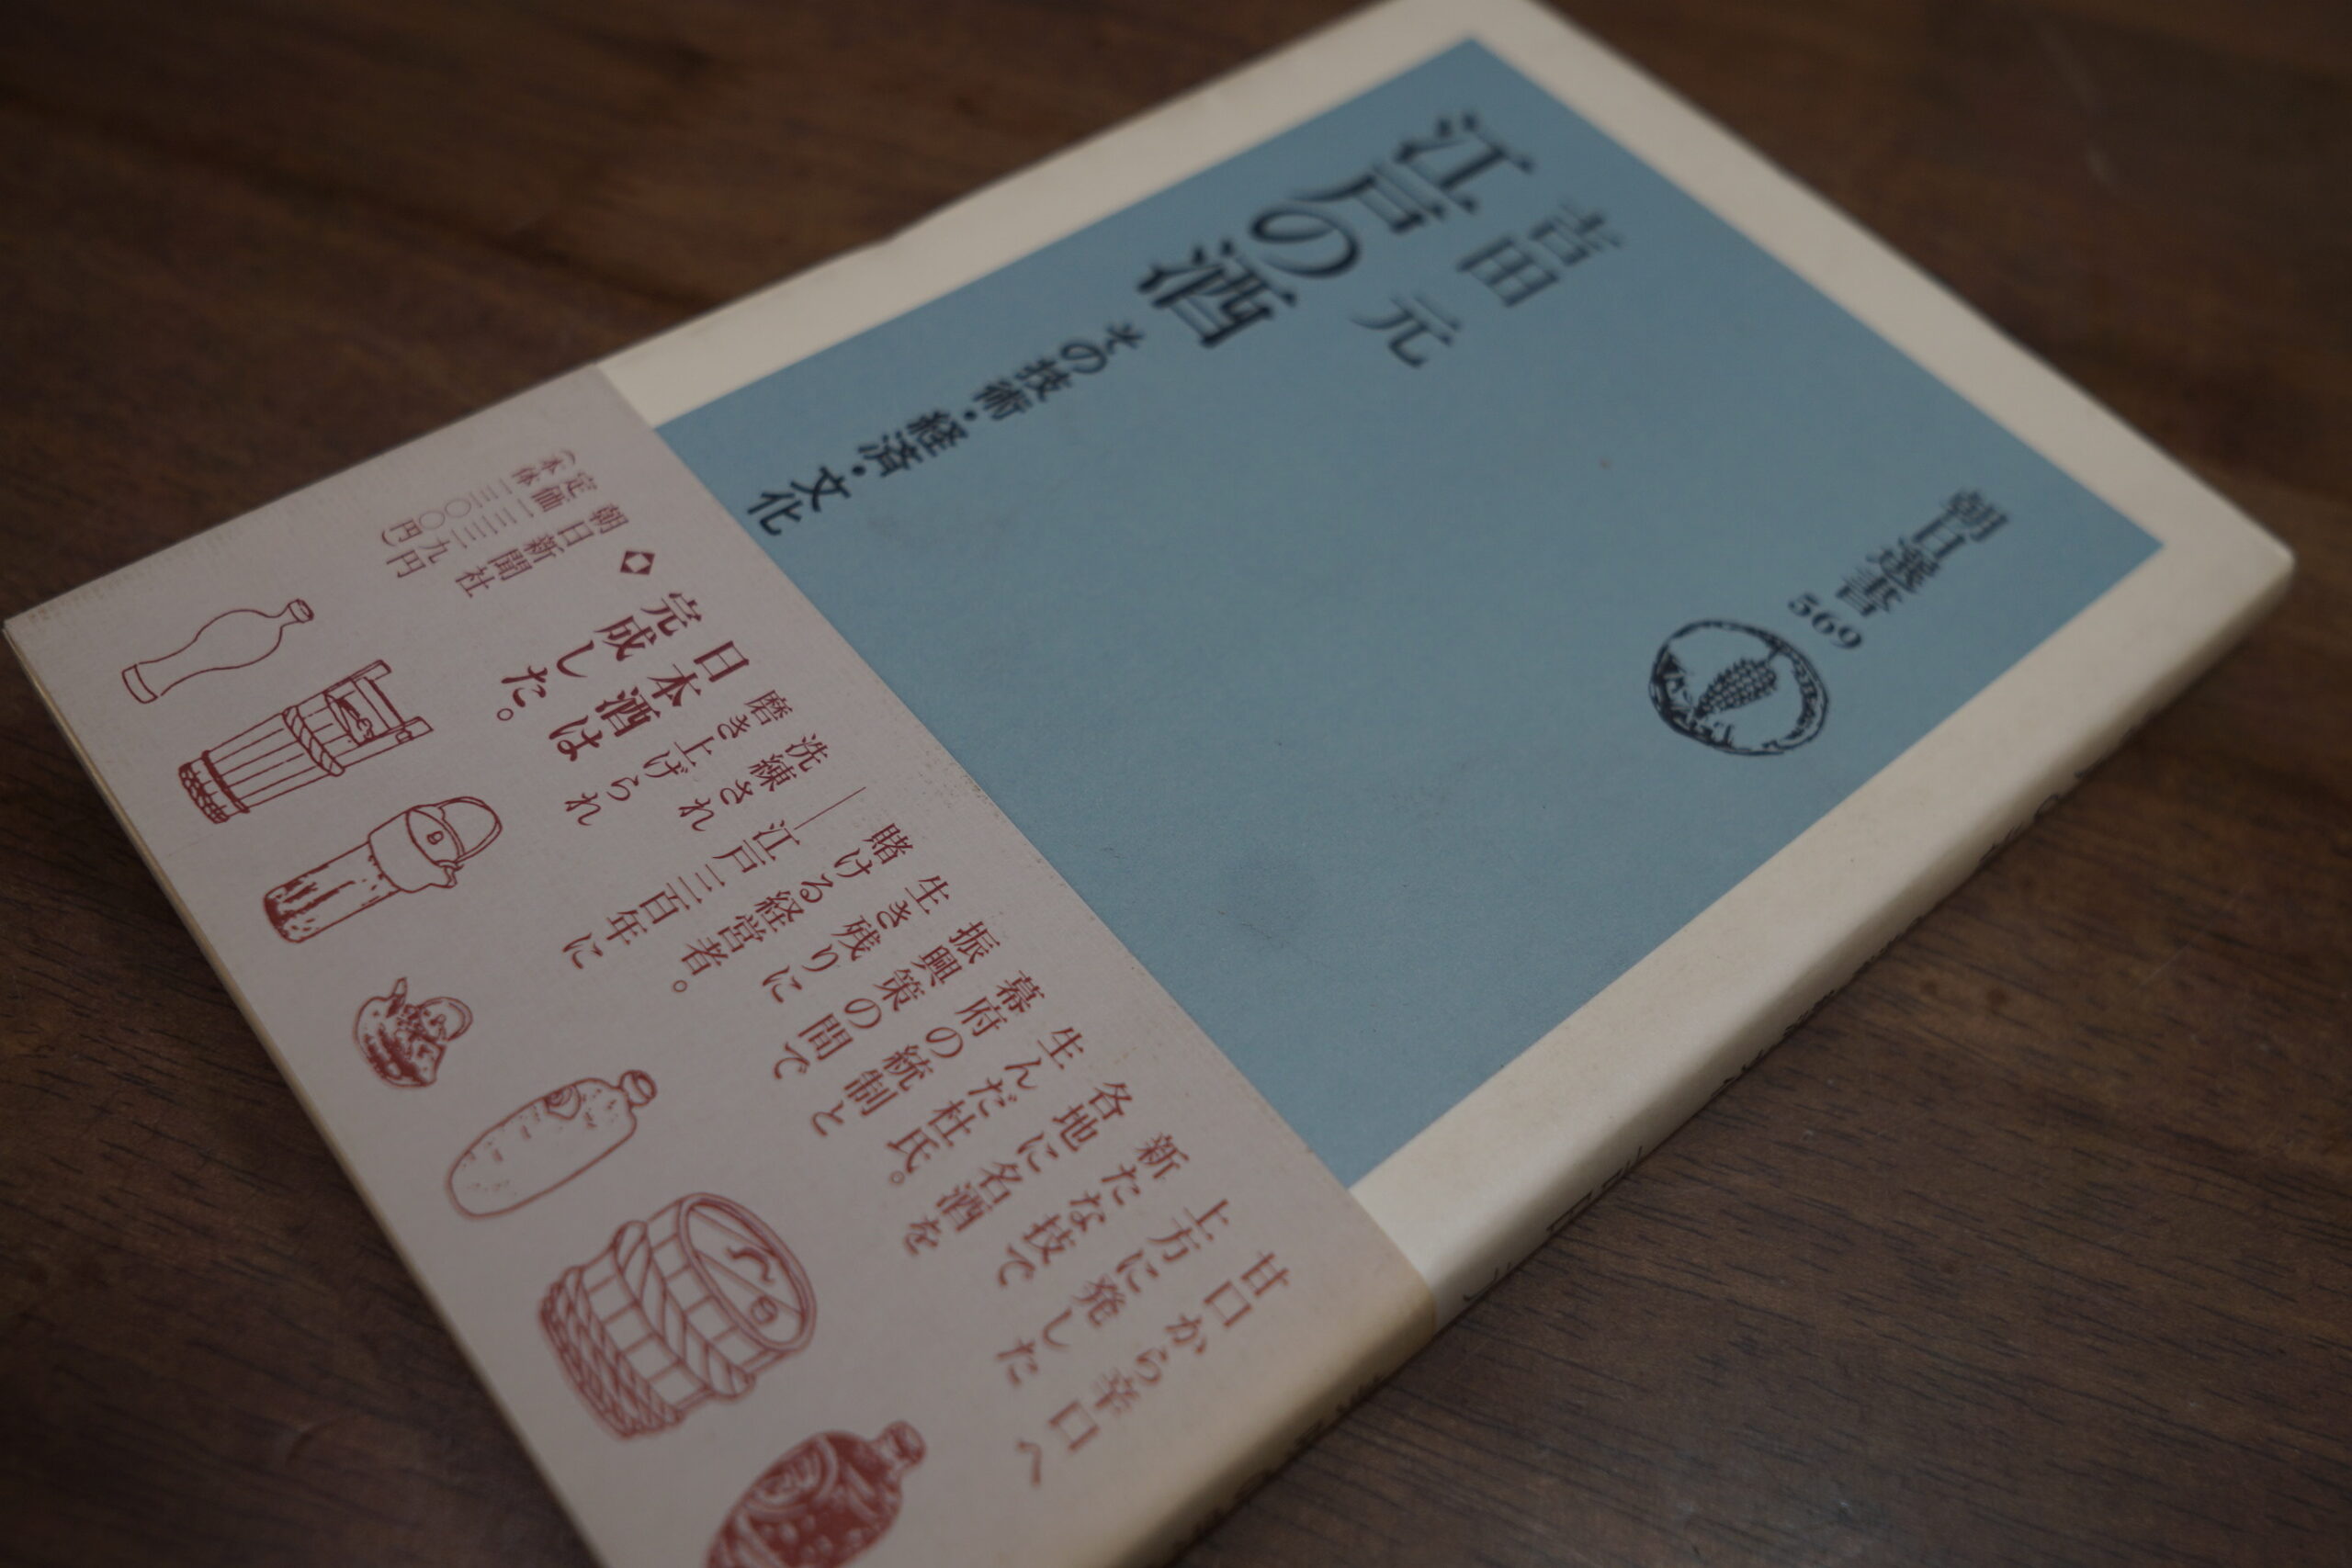 朝日選書
569
吉田 元
江戸の酒
その技術・経済・文化
甘口から辛口へ
上方に発した
新たな技で
各地に名酒を
生んだ杜氏。
幕府の統制と
振興策の間で
生き残りに
賭ける経営者。
―江戸三百年に
洗練され
磨き上げられ
日本酒は
完成した。
朝日新聞社
定価一三三九円
(本体一三〇〇円)